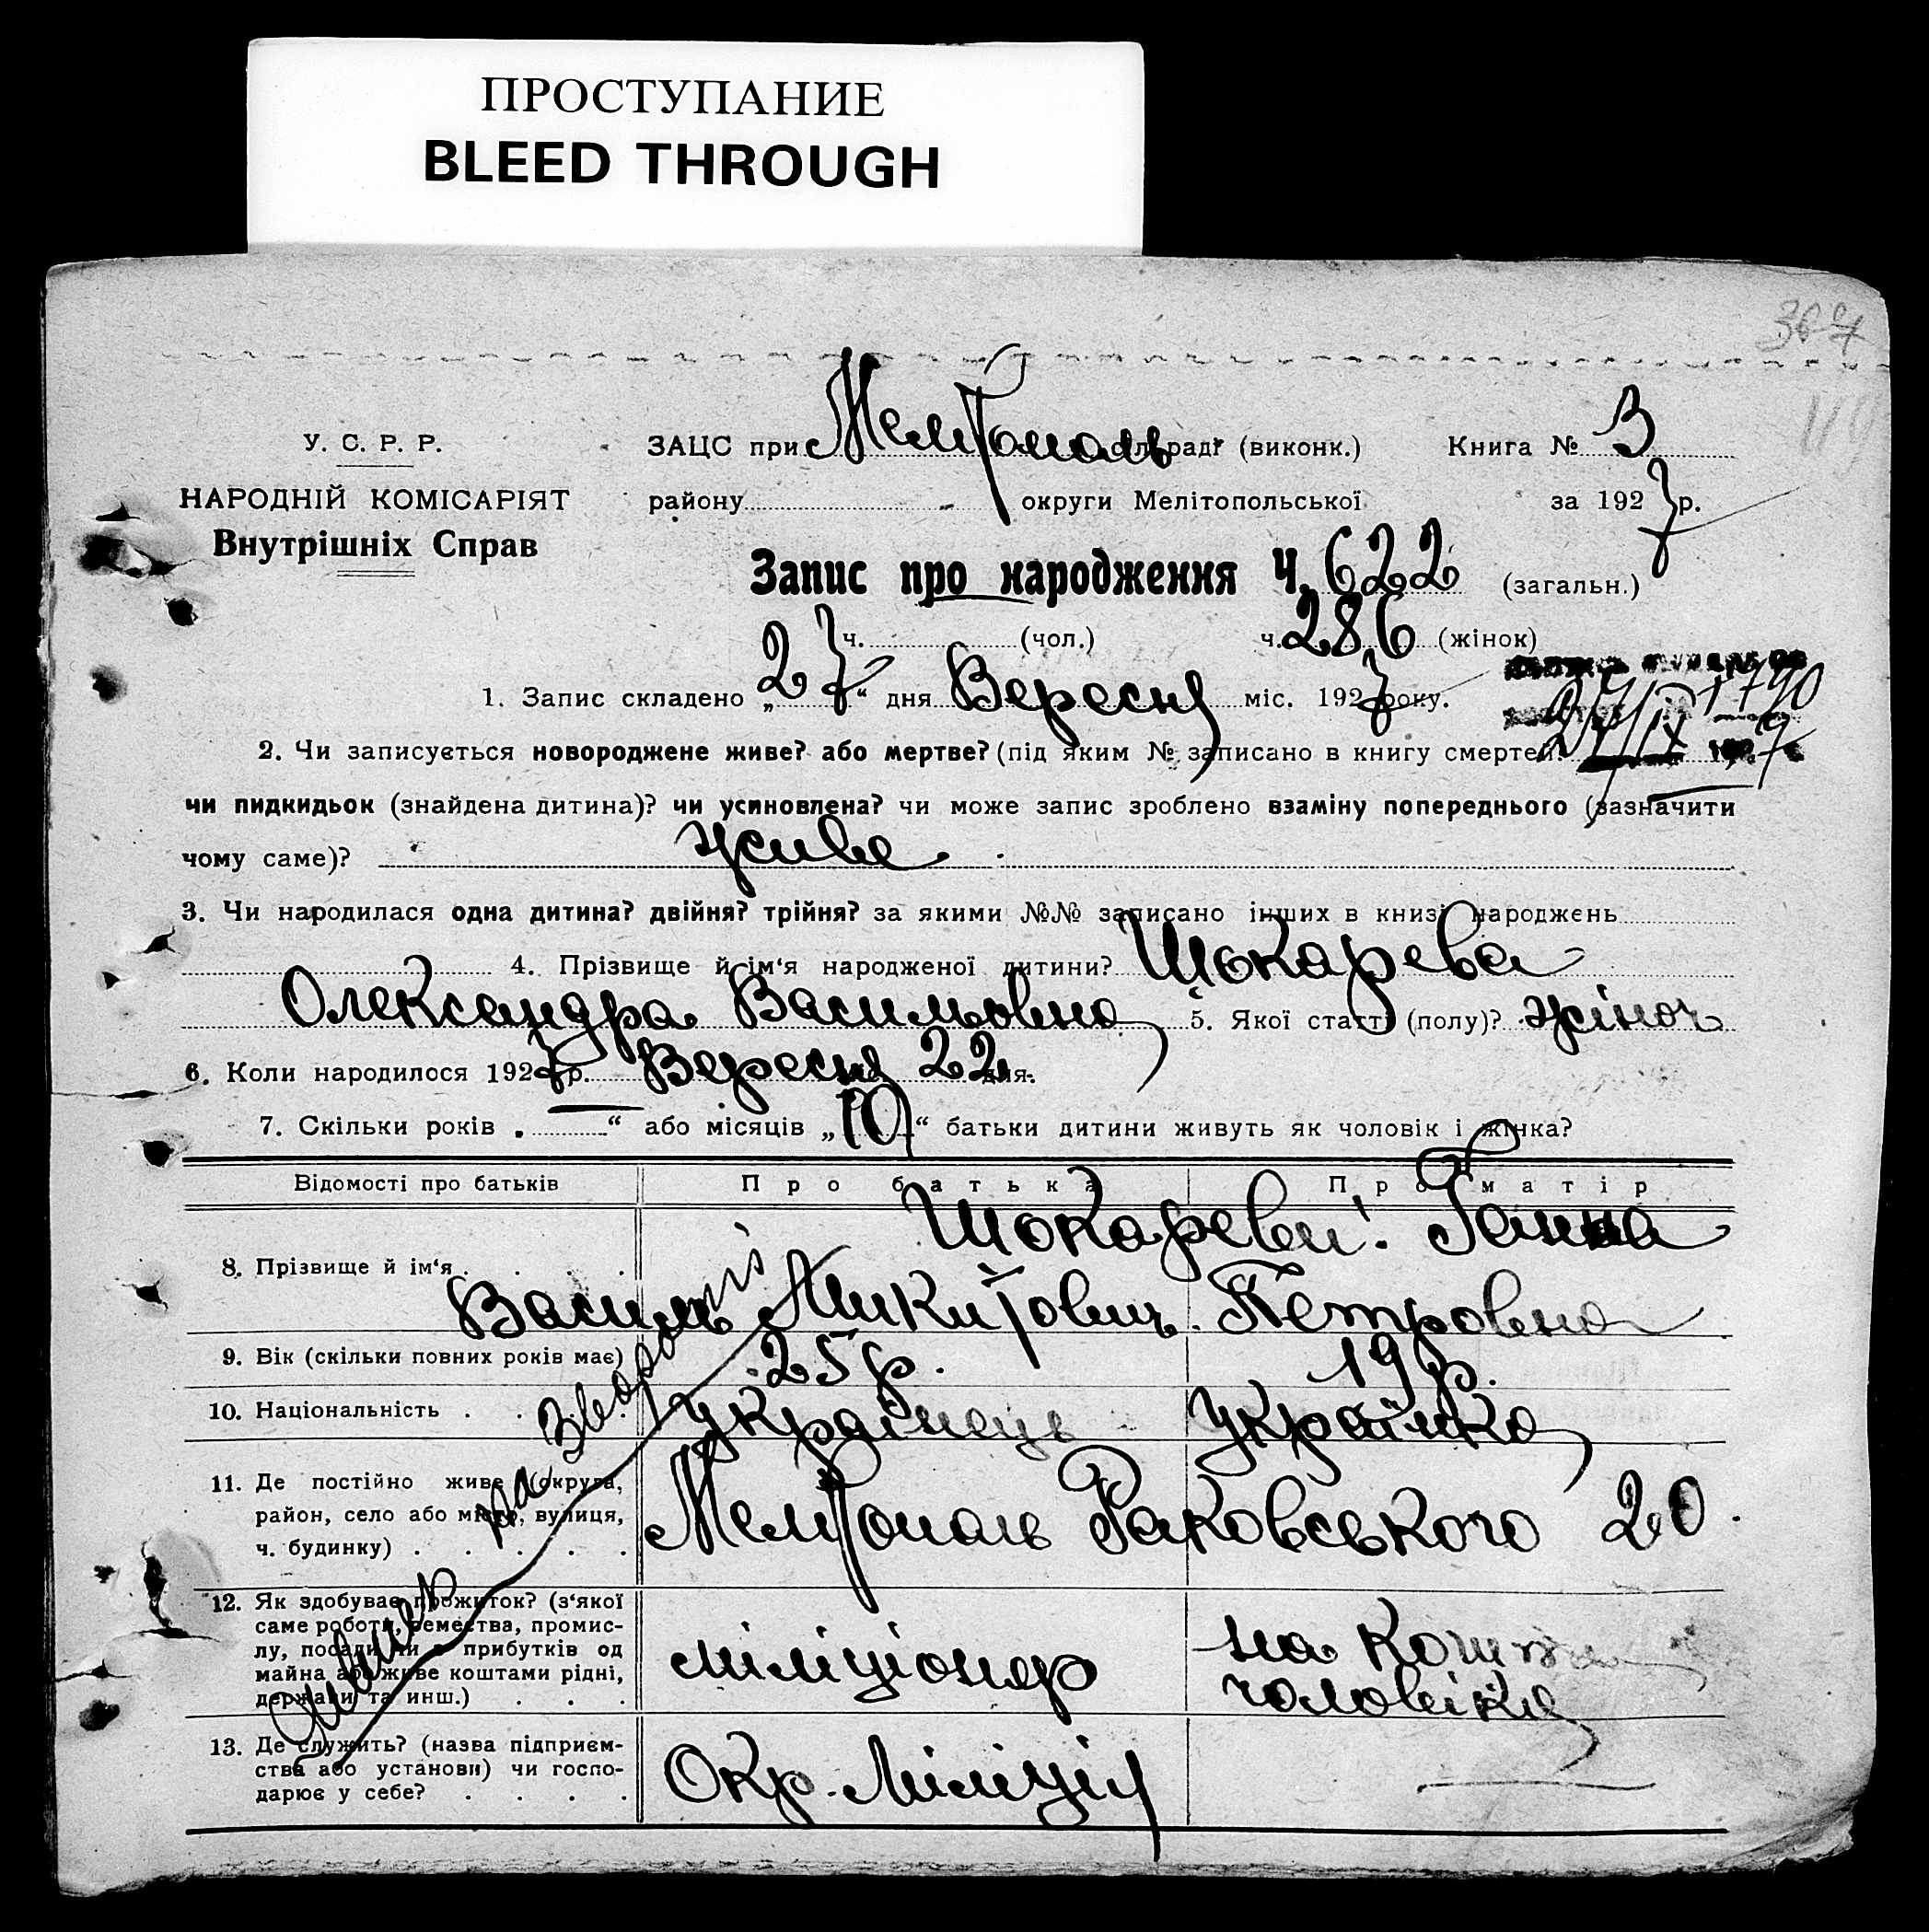 ПРОСТУПАНИЕ
BLEED THROUGH
У. С. Р. Р.
НАРОДНІЙ КОМІСАРІЯТ
Внутрішніх Справ
ЗАЦС при Мелітополь сільраді (виконк.) Книга № 3
району округи Мелітопольської за 1927 р.
Запис про народження Ч. 622 (загальн.)
ч. (чол.) ч. 286 (жінок)
1. Запис складено „27“ дня Вересня міс. 1927 року.
2. Чи записується новороджене живе? або мертве? (під яким № записано в книгу смертей)
чи пидкидьок (знайдена дитина)? чи усиновлена? чи може запис зроблено взаміну попереднього (зазначити
чому саме)? живе
3. Чи народилася одна дитина? двійня? трійня? за якими №№ записано інших в книзі народжень
4. Прізвище й ім‘я народженої дитини? Щокарева
Олександра Васильовна 5. Якої статті (полу)? жіноч
6. Коли народилося 1927 р. Вересня 22 дня.
7. Скільки років „—“ або місяців „10“ батьки дитини живуть як чоловік і жінка?
Відомості про батьків Про батька Про матір
Щокареви: Ганна
8. Прізвище й ім‘я . . . Василь Микитович Петровна
9. Вік (скільки повних років має) 25 р. 19 р.
10. Національність . . . українець українка
11. Де постійно живе (округа,
район, село або місто, вулиця,
ч. будинку) . . . . . Мелітополь Раковського 20.
12. Як здобуває прожиток? (з‘якої
саме роботи, ремества, промис-
лу, посади чи з прибутків од
майна або живе коштами рідні,
держави та инш.) . . . міліціонер на кошти чоловіка
13. Де служить? (назва підприєм-
ства або установи) чи госпо-
дарює у себе? . . . . Окр. Міліція
на звороті